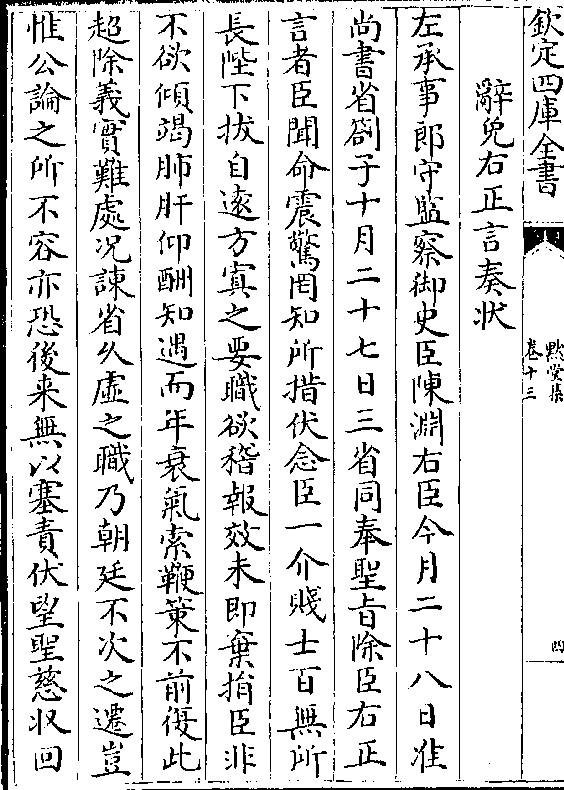 欽定四庫全書
默堂集
卷十三
四
辭免右正言奏狀
左承事郎守監察御史臣陳淵右臣今月二十八日准
尚書省劄子十月二十七日三省同奉聖旨除臣右正
言者臣聞命震驚罔知所措伏念臣一介賤士百無所
長陛下拔自逺方寘之要職欲稽報效未即棄捐臣非
不欲傾竭肺肝仰酬知遇而年衰氣索鞭策不前復此
超除義實難處况諫省久虛之職乃朝廷不次之遷豈
惟公論之所不容亦恐後来無以塞責伏望聖慈收回